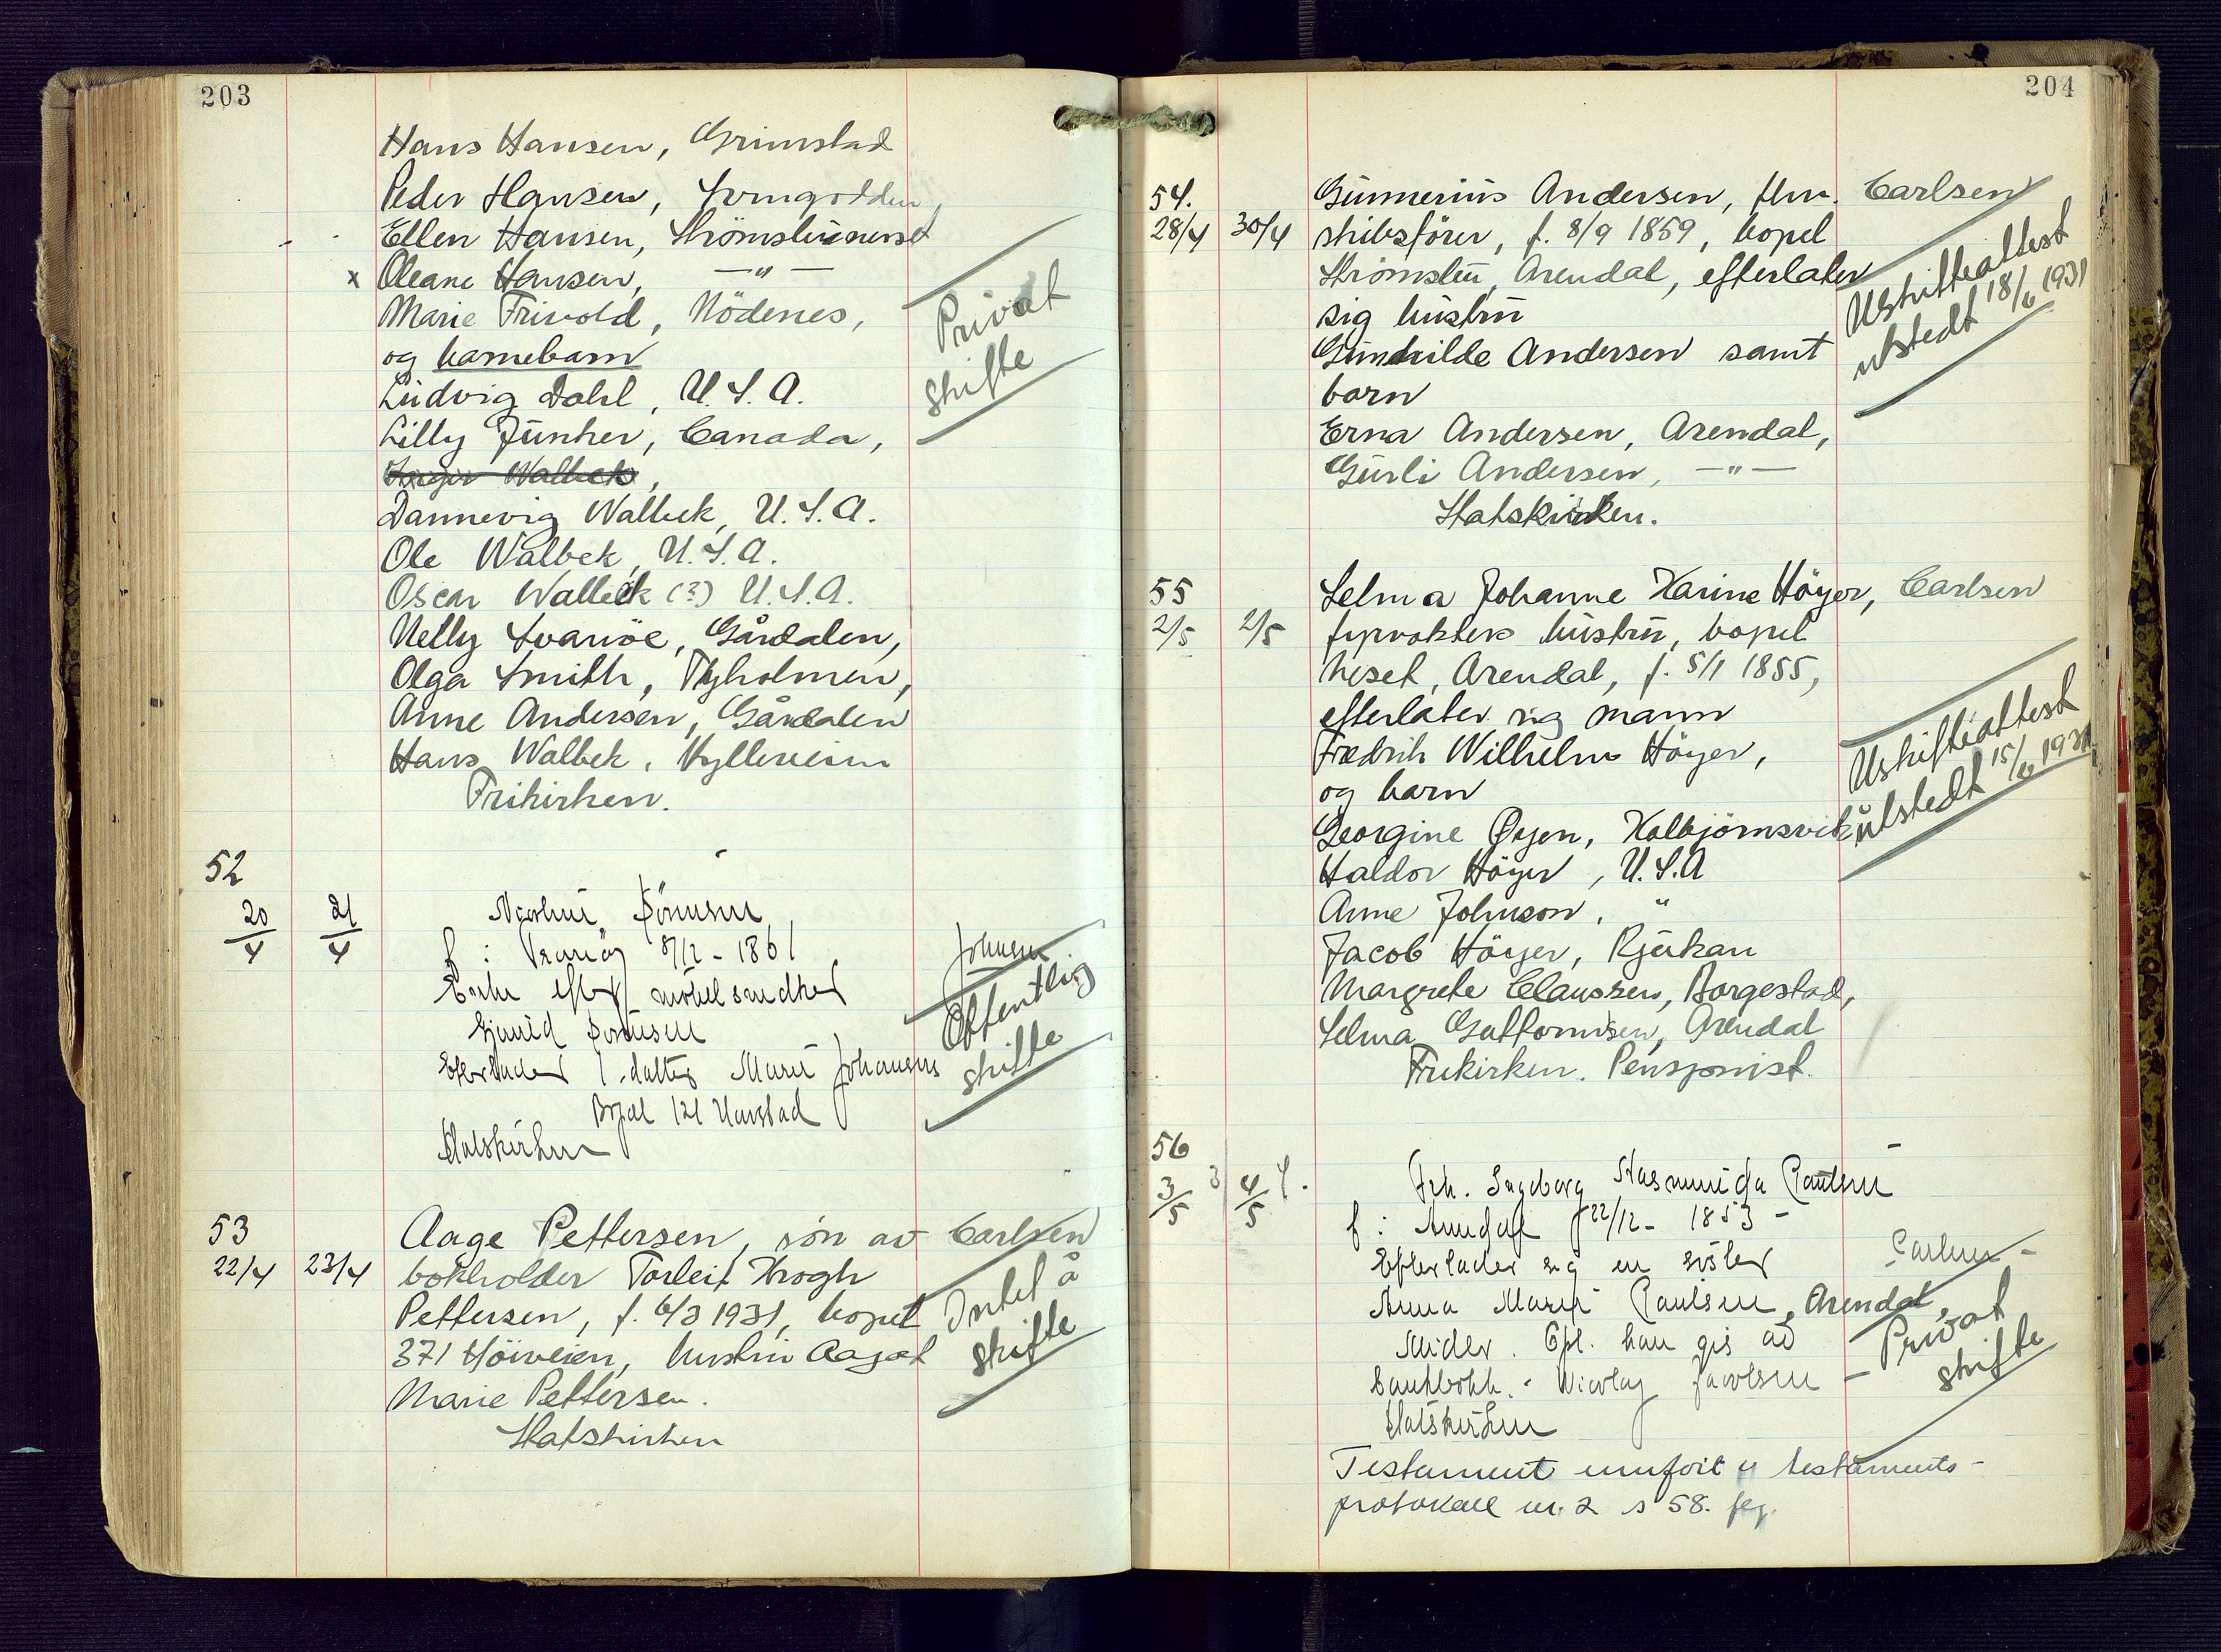 203
Hans Hansen, Grimstad
Peder Hansen,
Ellen Hansen, Strömsbunesset
x Oleane Hansen, —"—
Marie Trivold, Nödenes,
og barnebarn
Ludvig Dahl, U.S.A.
Lilly Junker, Canada,
Privat
skifte
Walbek,
Dannevig Walbek, U.S.A.
Ole Walbek, U.S.A.
Oscar Walbek (?) U.S.A.
Nelly Svanöe, Gårdalen,
Olga Smith, Tyholmen,
Anne Andersen, Gårdalen
Hans Walbek, Hylleveien
Frikirken.
52
20/4 21/4
f: Tromöy 8/12 - 1861
Enke efter
Efterlader 1 datter Marie Johansens
Statskirken
Johnsen
Offentlig
skifte
53
22/4 23/4
Aage Pettersen, sön av Carlsen
bokholder Torleif Krogh
Pettersen, f. 6/3 1931, bopel
371 Höiveien, hustru Aagot
Marie Pettersen.
Statskirken
Intet å
skifte
204
54.
28/4 30/4
Gunnerius Andersen, fhv. Carlsen
skibsförer, f. 8/9 1859, bopel
Strömsbu, Arendal, efterlater
sig hustru
Gunhilde Andersen samt
barn
Erna Andersen, Arendal,
Gurli Andersen, —"—
Statskirken.
Uskifteattest
utstedt 18/6 1931
55
2/5 2/5
Selma Johanne Karine Höyer, Carlsen
fyrvokters hustru, bopel
Neset, Arendal, f. 5/1 1855,
efterlater sig mann
Fredrik Wilhelm Höyer,
og barn
Georgine Øyen, Kolbjörnsvik
Haldor Höyer, U.S.A
Anne Johnson, "
Jacob Höyer, Rjukan
Margrete Claussen, Borgestad,
Selma Guttormsen, Arendal
Frikirken. Pensjonist.
Uskifteattest
utstedt 15/6 1931
56
3/5 4/5
Frk. Ingeborg Paulsen
f: Arendal 22/12 - 1853 -
Efterlader sig en söster
Anna Marie Paulsen, Arendal,
Midler. Opl. kan gis av
Nicolay Jacobsen -
Statskirken
Carlsen -
Privat
skifte
Testament innfört i testaments-
protokoll nr. 2 s 58. flg.